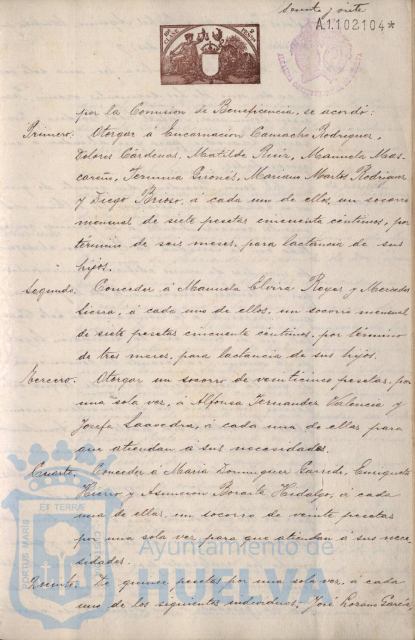 veinte y siete
A.1.102104*
por la Comision de Beneficencia, se acordó:
Primero: Otorgar á Encarnacion Camacho Rodriguez,
Dolores Cárdenas, Matilde Ruiz, Manuela Mas-
careño, Fermina Quiones, Mariano Martos Rodriguez
y Diego Brioso, á cada uno de ellos, un socorro
mensual de siete pesetas cincuenta centimos, por
término de seis meses, para lactancia de sus
hijos.
Segundo. Conceder á Manuela Elvira Reyes y Mercedes
Sierra, á cada uno de ellos, un socorro mensual
de siete pesetas cincuenta céntimos, por término
de tres meses, para lactancia de sus hijos.
Tercero. Otorgar un socorro de veinticinco pesetas, por
una sola vez, á Alfonsa Fernandez Valencia y
Josefa Saavedra, á cada una de ellas para
que atiendan á sus necesidades.
Cuarto. Conceder á Maria Dominguez Garrido, Enriqueta
Hierro y Asuncion Hidalgo, á cada
una de ellas, un socorro de veinte pesetas
por una sola vez, para que atiendan á sus nece-
sidades.
Quinto: De quince pesetas por una sola vez, á cada
uno de los siguientes individuos: José Lozano García,
PORTUS MARIS
ET TERRAE
Ayuntamiento de
HUELVA